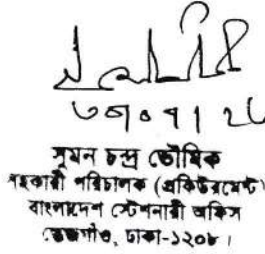 সুমন চন্দ্র ভৌমিক
সহকারী পরিচালক (প্রকিউরমেন্ট)
বাংলাদেশ স্টেশনারী অফিস
তেজগাঁও, ঢাকা-১২০৮।